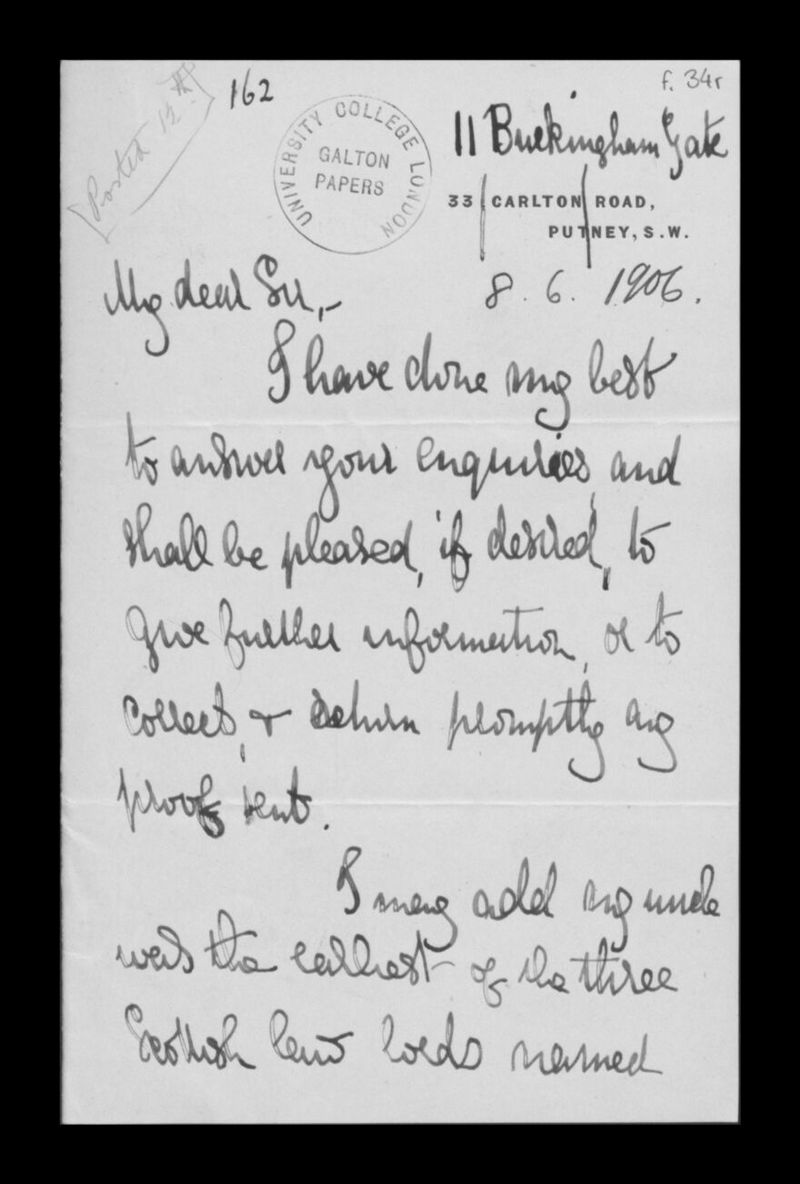 Posted 12th
162
f. 34r
UNIVERSITY COLLEGE LONDON
GALTON
PAPERS
11 Buckingham Gate
33 CARLTON ROAD,
PUTNEY, S.W.
8. 6. 1906.
My dear Sir,–
I have done my best
to answer your enquiries, and
shall be pleased, if desired, to
give further information, or to
correct, & return promptly any
proof sent.
I may add my uncle
was the earliest of the three
Scottish law lords named